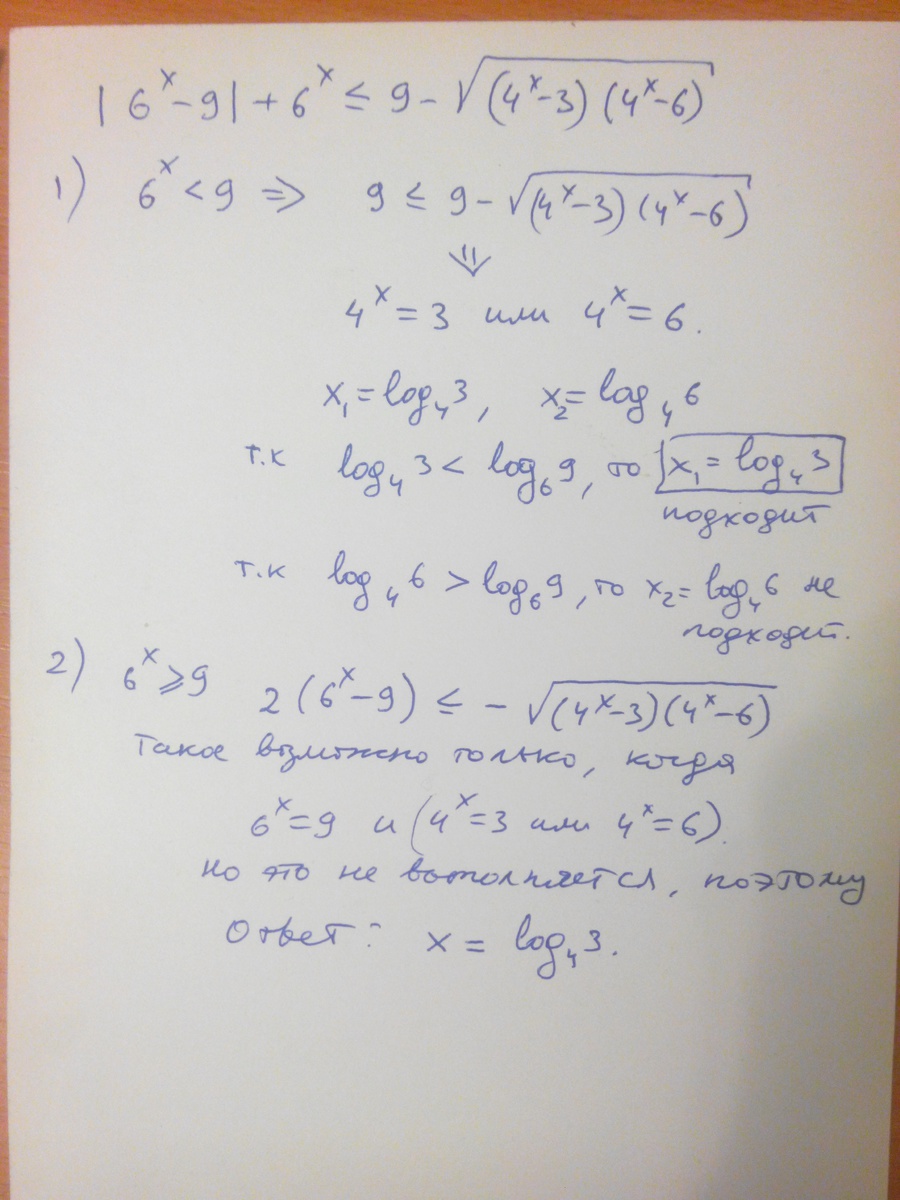 |6ˣ-9| + 6ˣ ≤ 9 - √((4ˣ-3)(4ˣ-6))
1) 6ˣ < 9 ⇒ 9 ≤ 9 - √((4ˣ-3)(4ˣ-6))
⇓
4ˣ = 3 или 4ˣ = 6.
x₁ = log₄3, x₂ = log₄6
т.к log₄3 < log₆9, то x₁ = log₄3
подходит
т.к log₄6 > log₆9, то x₂ = log₄6 не
подходит.
2) 6ˣ ⩾ 9 2(6ˣ-9) ≤ - √((4ˣ-3)(4ˣ-6))
Такое возможно только, когда
6ˣ = 9 и (4ˣ = 3 или 4ˣ = 6).
но это не выполняется, поэтому
Ответ: x = log₄3.